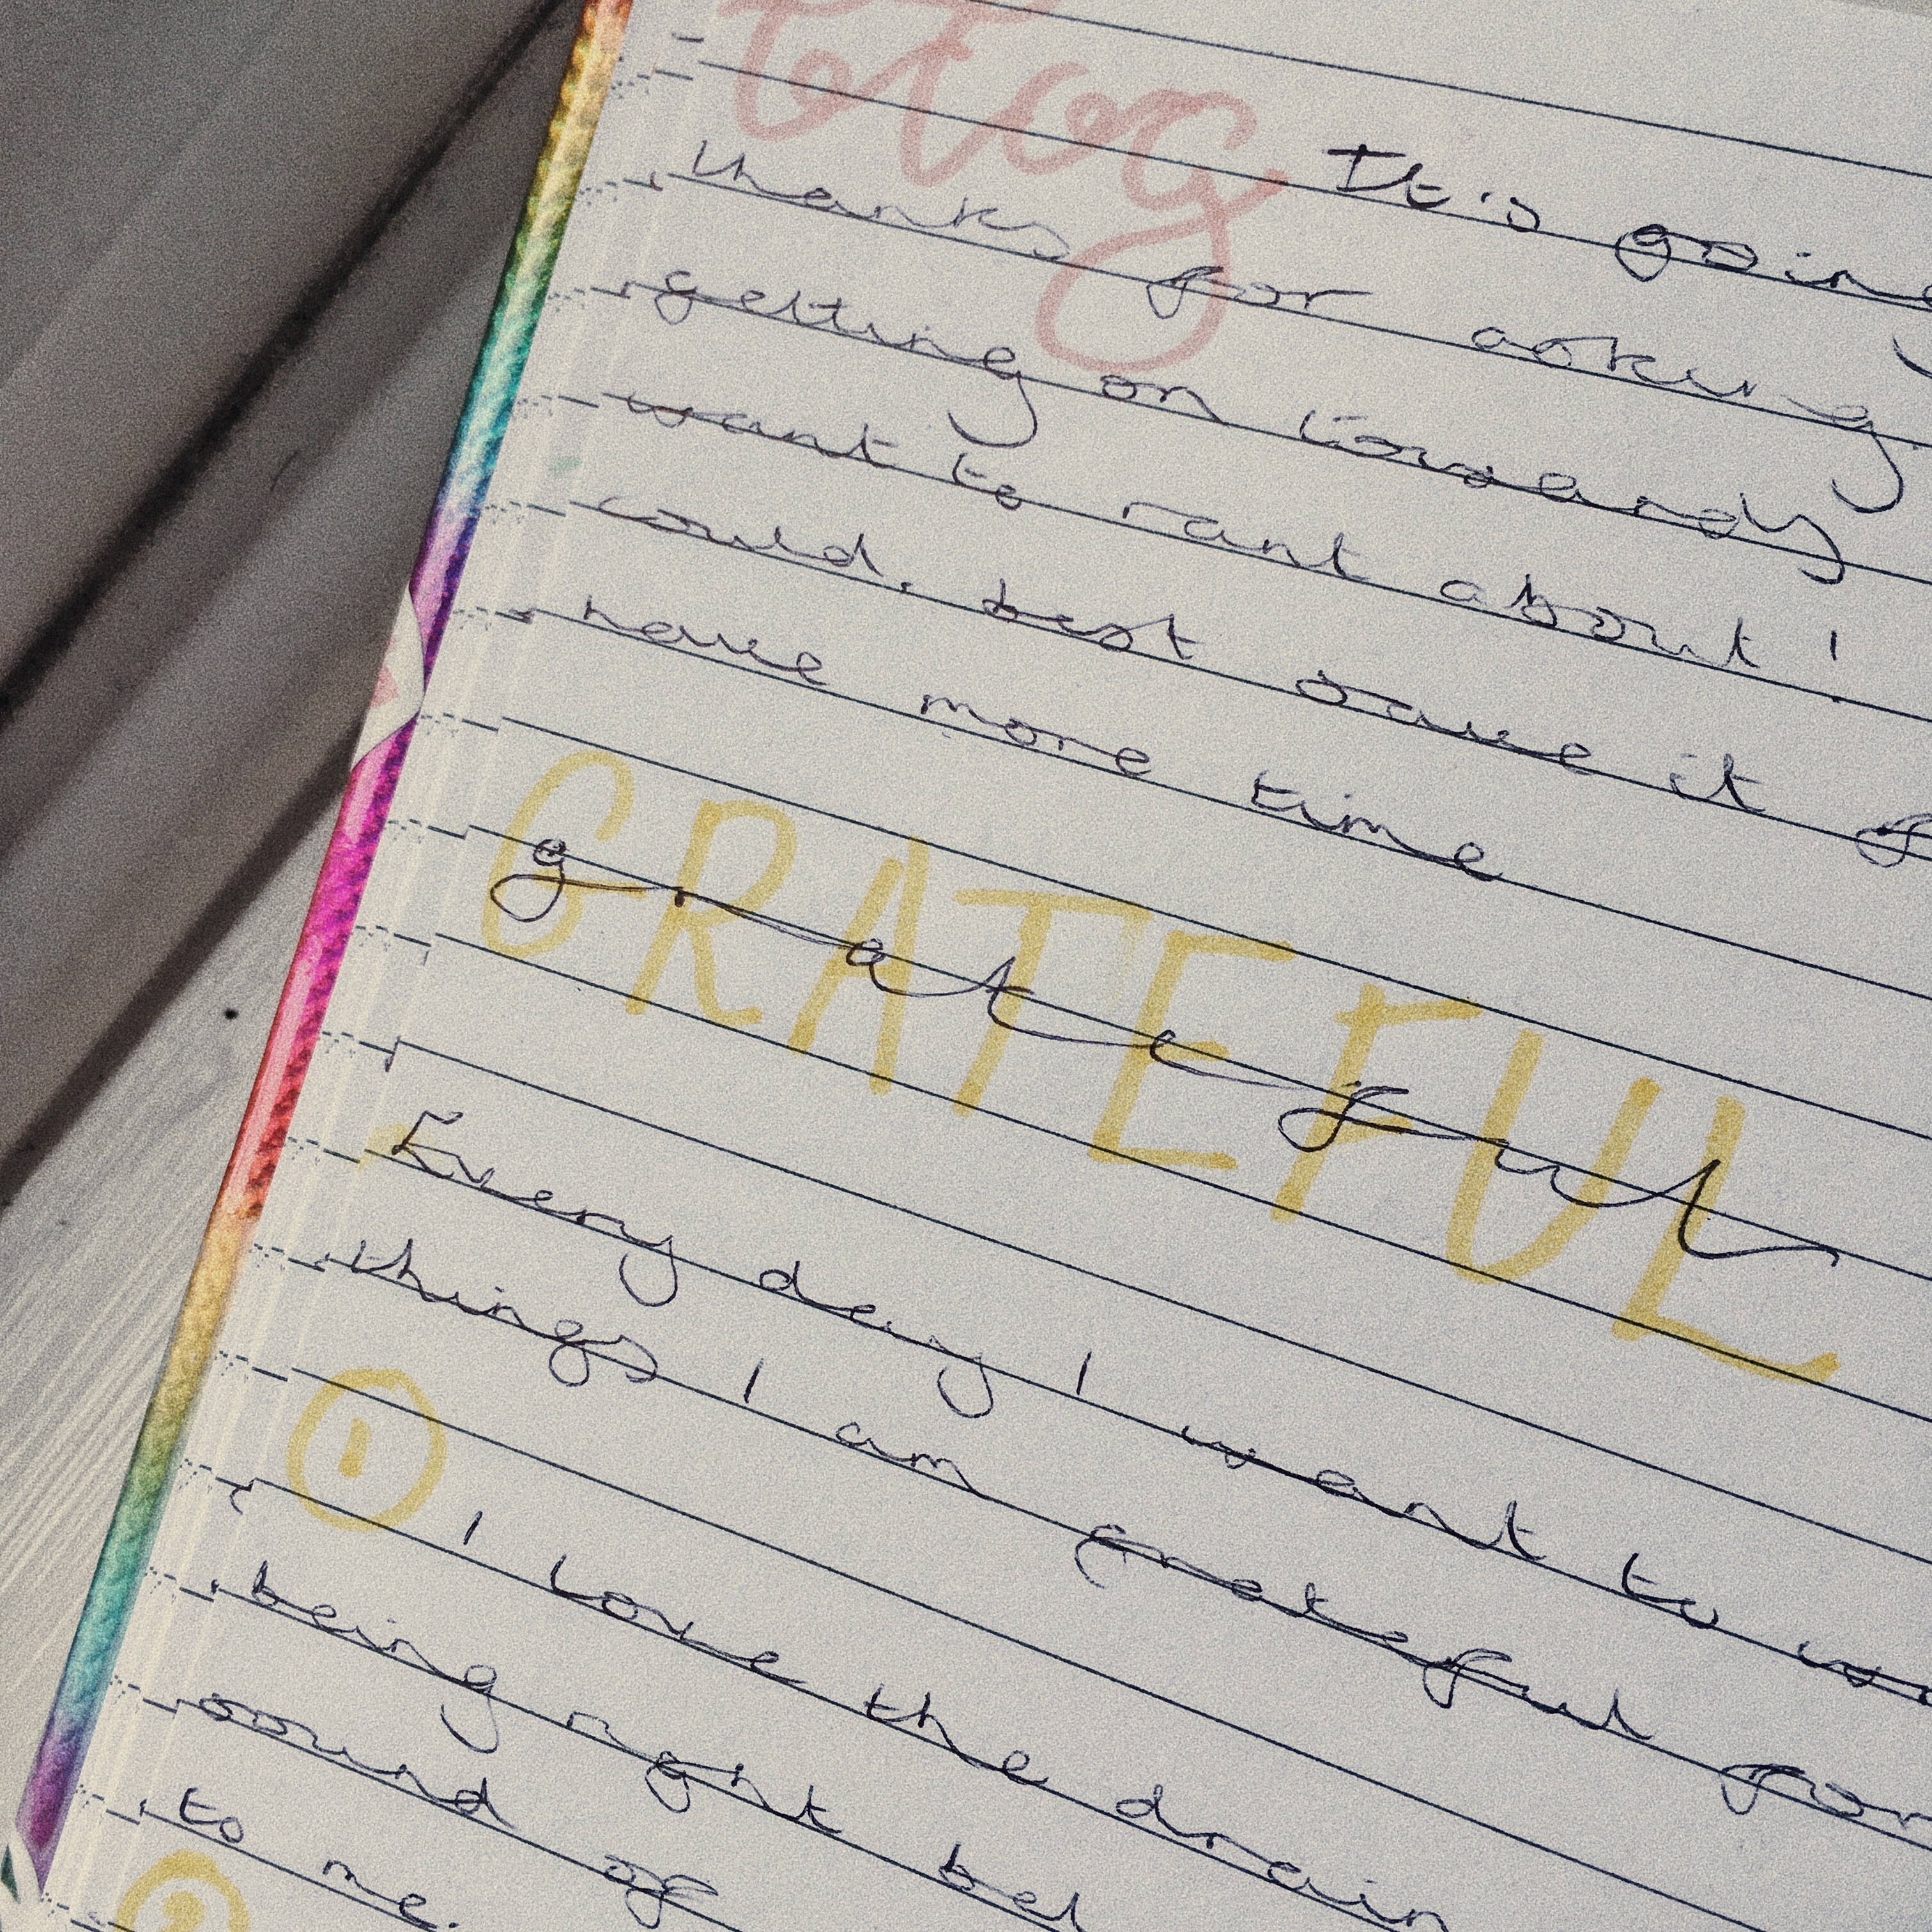 It's going
thanks for asking
getting on
want to rant about!
could, best save it
have more time
GRATEFUL
grateful
Every day I want to
things I am grateful for
1
I love the drain
being right bel
sound of
to me.
2